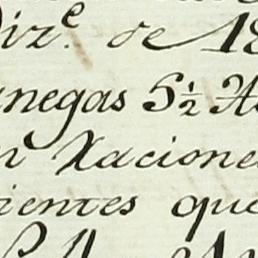 Dizᵉ. de 18
anegas 5½ A
n Xacione
ientes que